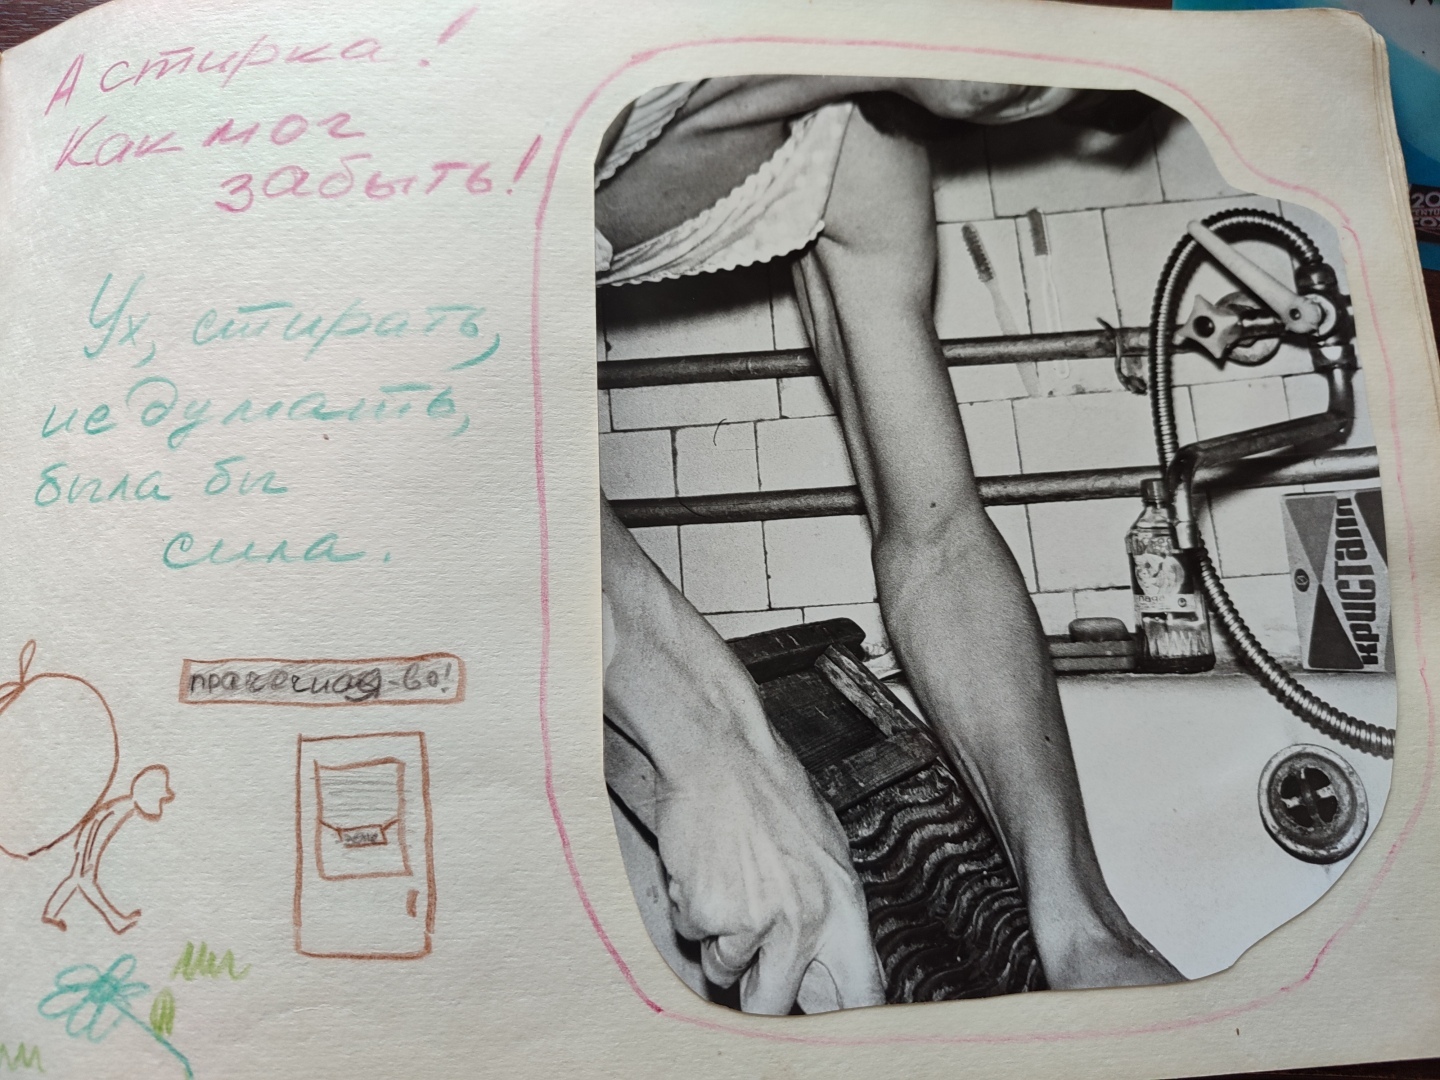 А стирка!
Как мог
забыть!
Ух, стирать,
не думать,
была бы
сила.
прачечная-во!
КРИСТАЛЛ
20